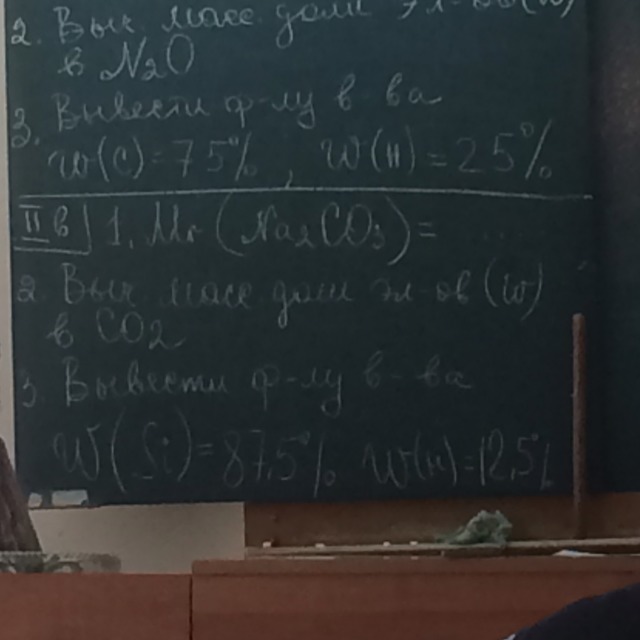 2. Выч. масс. доли эл-ов (w)
в N2O
3. Вывести ф-лу в-ва
w(C)=75%, w(H)=25%
II в 1. Mr(Na2CO3)=
2. Выч. масс. доли эл-ов (w)
в CO2
3. Вывести ф-лу в-ва
w(Si)=87,5% w(H)=12,5%